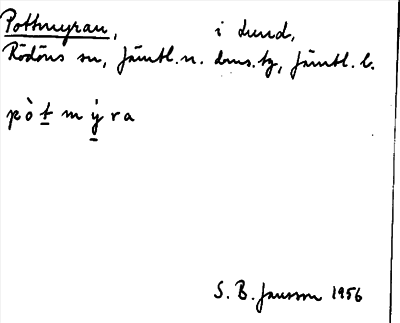 Pottmyran, i Lund,
Rödöns sn, Jämtl. n. doms. tg, Jämtl. l.
pòt mýra
S. B. Jansson 1956